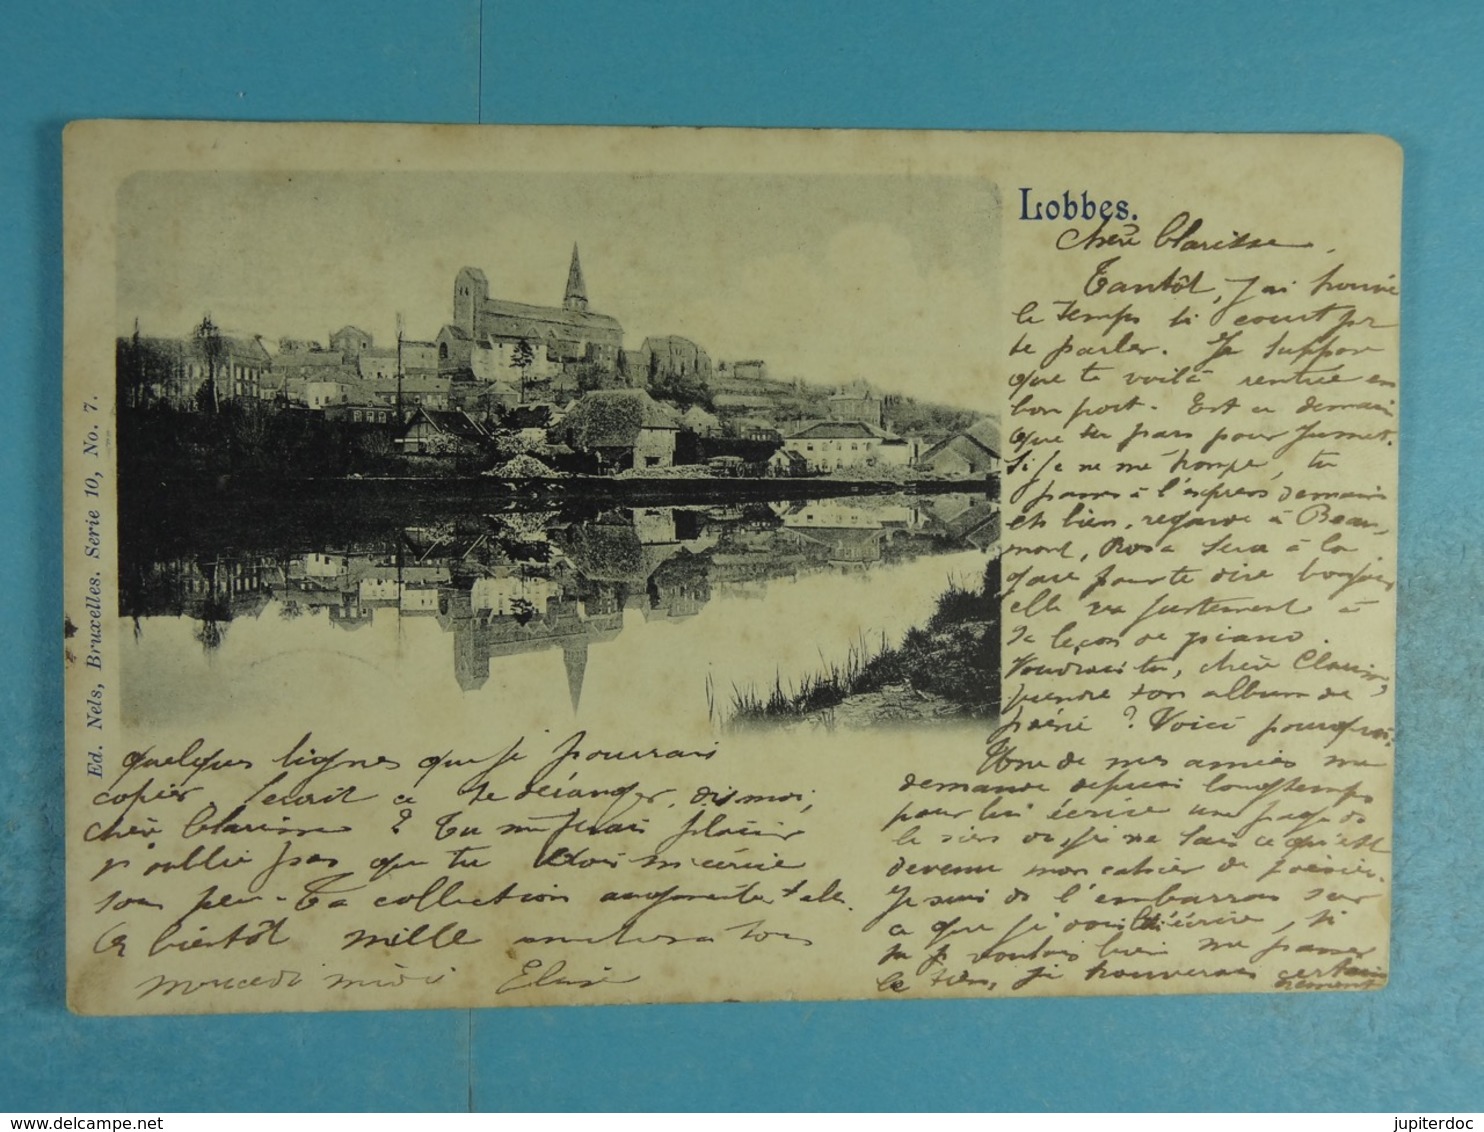 Lobbes.
Chère Clarisse,
Tantôt, j'ai trouvé
le temps si court pr
te parler. Je suppose
que te voilà rentrée en
bon port. Est ce demain
que tu pars pour Jumet.
Si je ne me trompe, tu
passes à l'express demain
eh bien, regarde à Beau-
mont, Rosa sera à la
gare pour te dire bonjour
elle va justement à
sa leçon de piano.
Voudrais tu, chère Clarisse,
prendre ton album de
poésie ? Voici pourquoi.
Une de mes amies me
demande depuis longtemps
pour lui écrire une page ds
le sien or, je ne sais ce qu'est
devenu mon cahier de poésies.
Je suis ds l'embarras sur
ce que je dois lui écrire, si
tu voulais bien me passer
le tien, je trouverais certaine
nement
quelques lignes que je pourrais
copier, serait ce te déranger, dis moi,
chère Clarisse ? Tu me ferais plaisir
n'oublie pas que tu dois m'écrire
sous peu - Ta collection augmente t elle.
A bientôt mille
mercredi midi Elise
Ed. Nels, Bruxelles. Serie 10, No. 7.
jupiterdoc